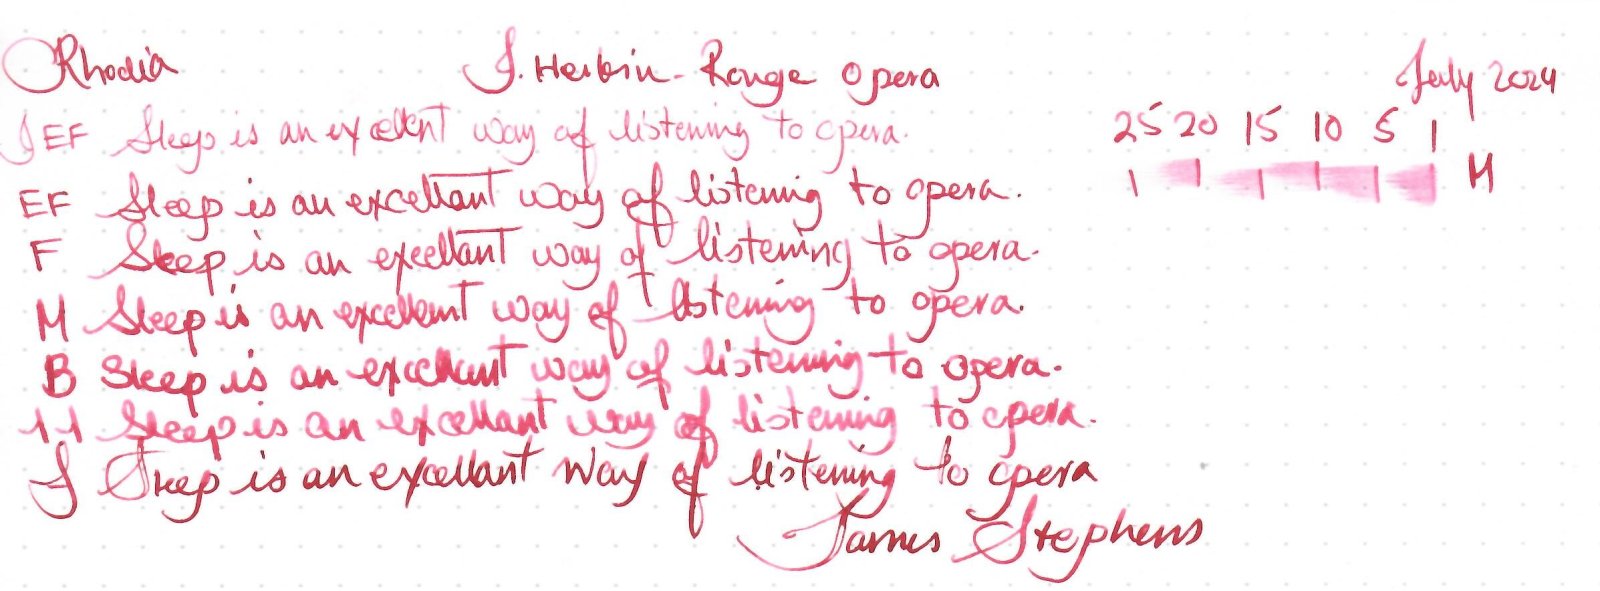 Rhodia J. Herbin - Rouge Opera July 2024
25 20 15 10 5 1
M
JEF Sleep is an excellent way of listening to opera.
EF Sleep is an excellant way of listening to opera.
F Sleep is an excellant way of listening to opera.
M Sleep is an excellent way of listening to opera.
B Sleep is an excellent way of listening to opera.
1.1 Sleep is an excellant way of listening to opera.
J Sleep is an excellant way of listening to opera
James Stephens